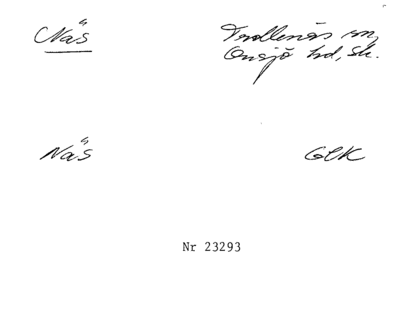 Näs
Trollenäs sn,
Onsjö hd, Sk.
Näs
GEK
Nr 23293